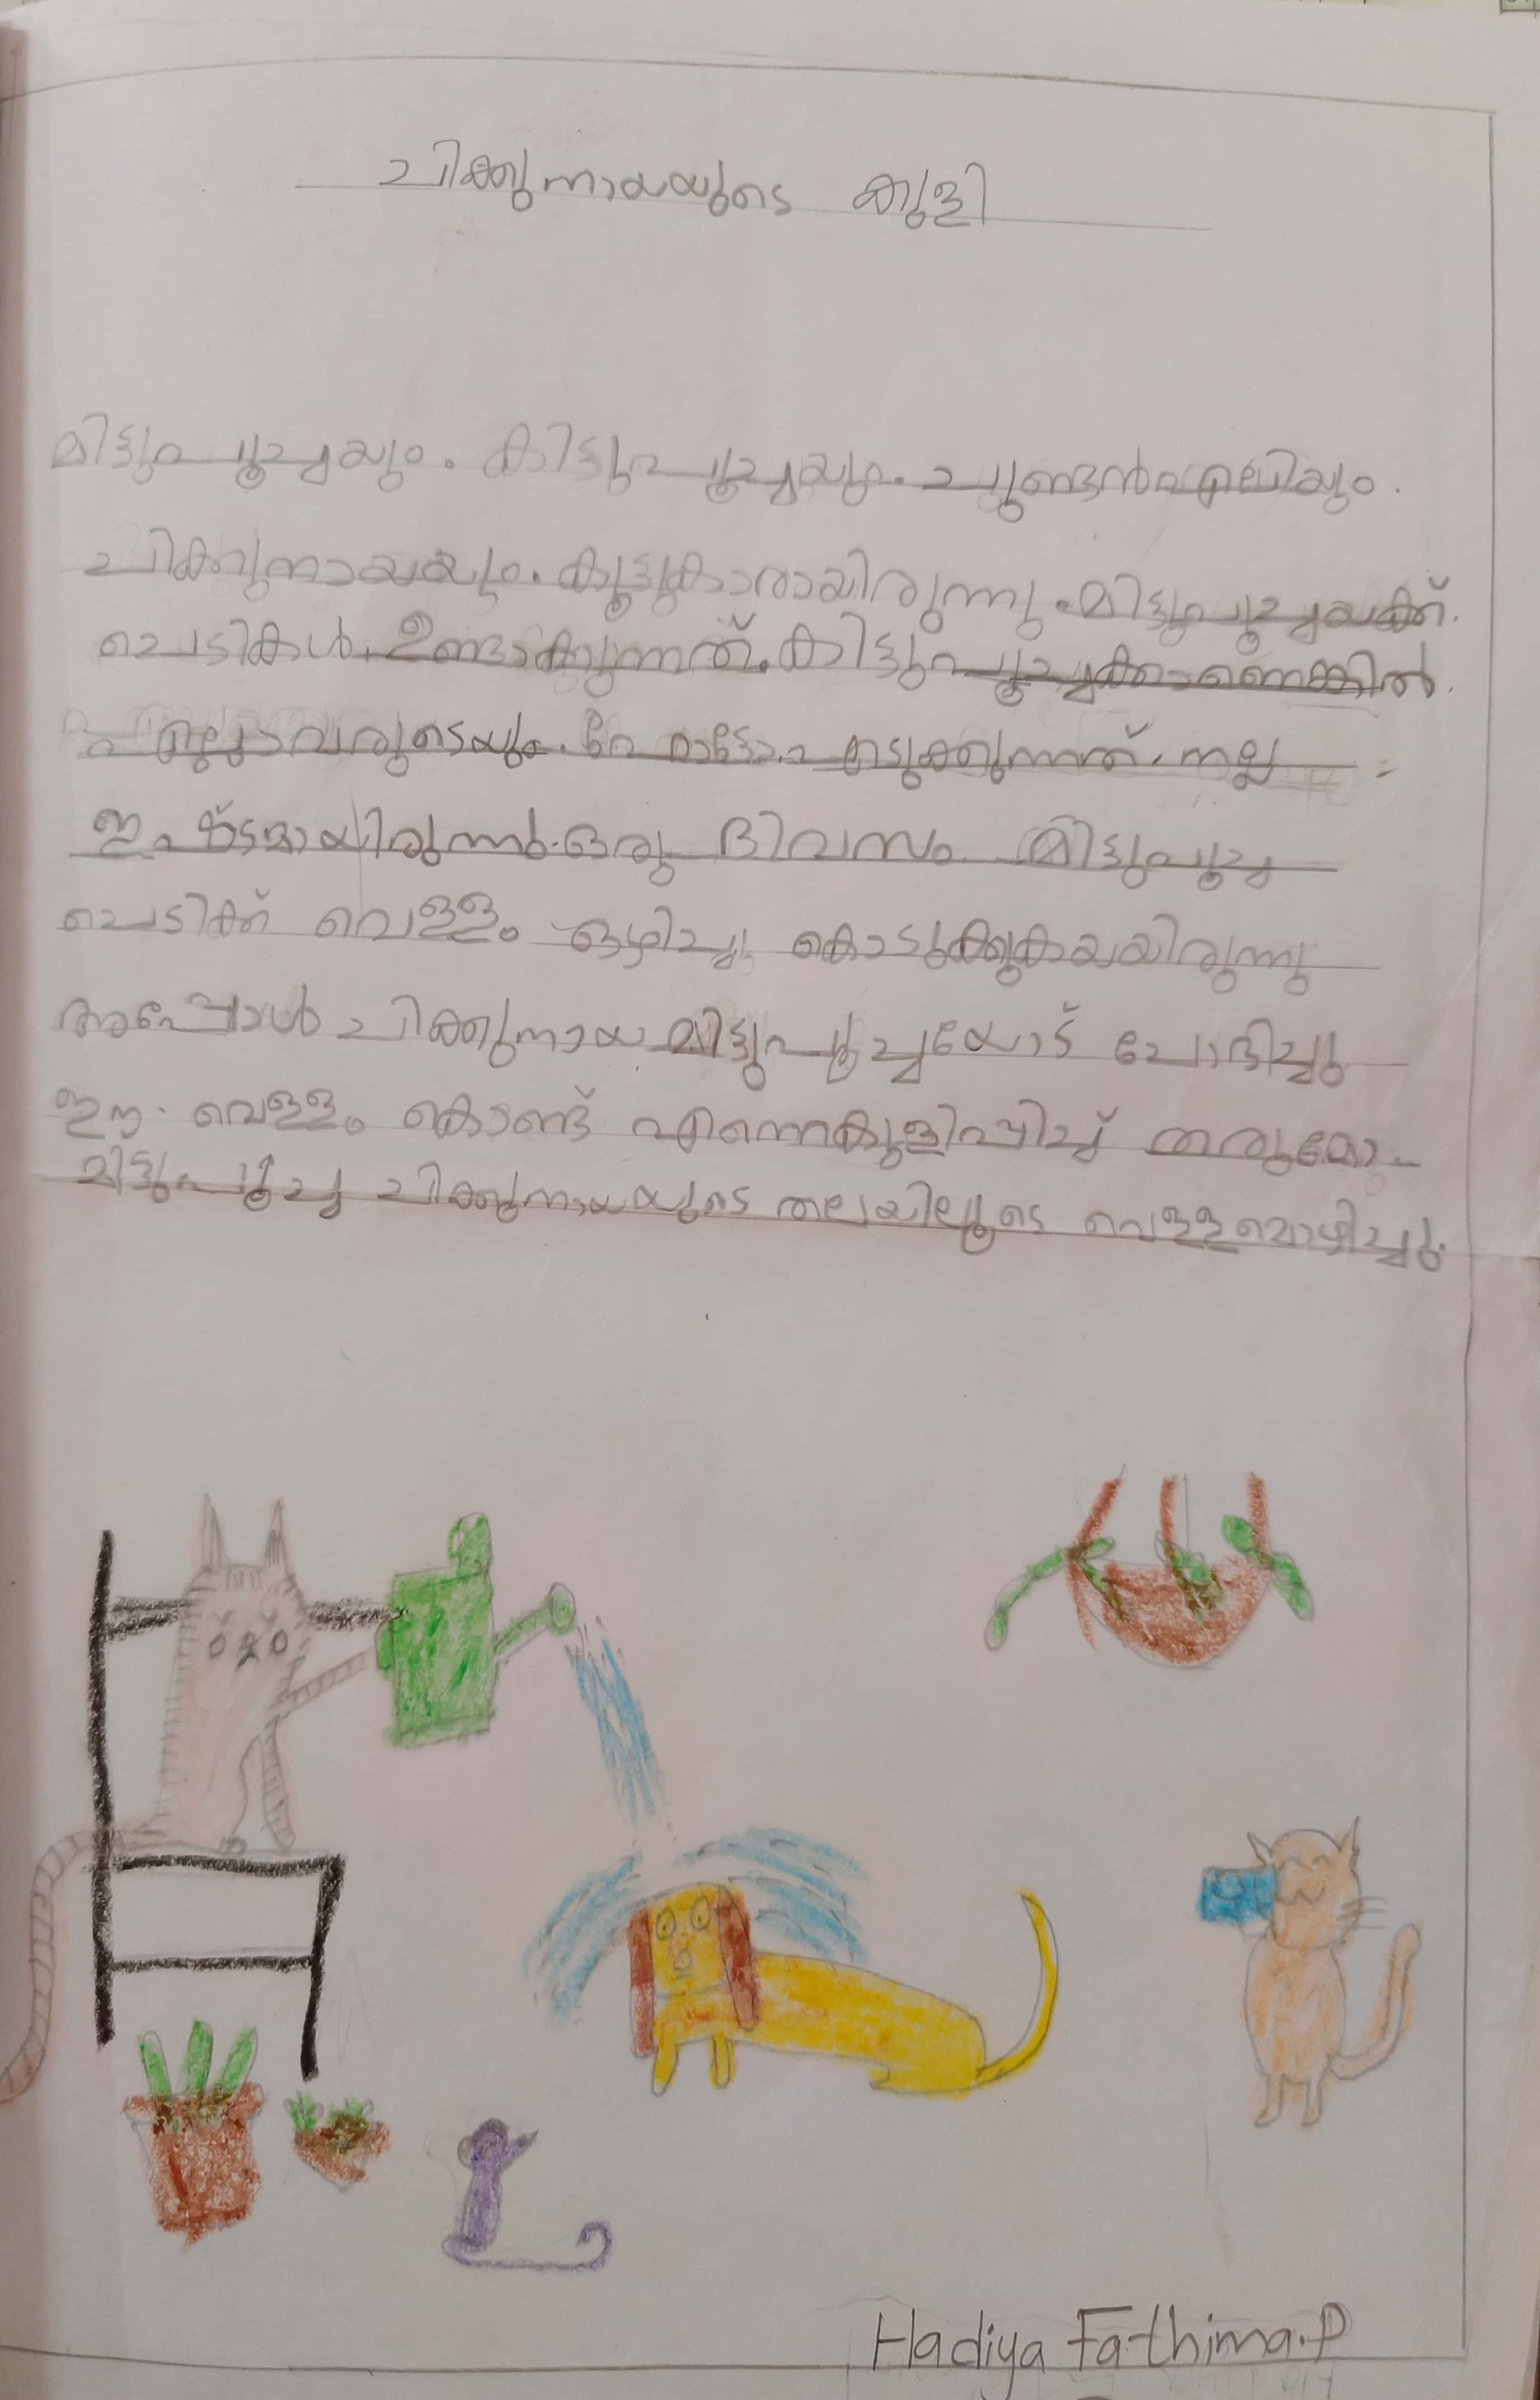 ചിക്കുനായയുടെ കുളി
മിട്ടുപൂച്ചയും. കിട്ടുപൂച്ചയും. ചുണ്ടൻഎലിയും.
ചിക്കുനായയും. കൂട്ടുകാരായിരുന്നു. മിട്ടുപൂച്ചയക്ക്.
ചെടികൾ. ഉണ്ടാക്കുന്നത്. കിട്ടുപൂച്ചക്കാണെങ്കിൽ.
എല്ലാവരുടെയും. ഫോട്ടോ എടുക്കുന്നത്. നല്ല
ഇഷ്ടമായിരുന്നു. ഒരു ദിവസം മിട്ടുപൂച്ച
ചെടിക്ക് വെള്ളം ഒഴിച്ചു കൊടുക്കുകയയിരുന്നു
അപ്പോൾ ചിക്കുനായ മിട്ടുപൂച്ചയോട് ചോദിച്ചു
ഈ. വെള്ളം കൊണ്ട് എന്നെകുളിപ്പിച്ച് തരുമോ.
മിട്ടുപൂച്ച ചിക്കുനായയുടെ തലയിലൂടെ വെള്ളമൊഴിച്ചു.
Hadiya Fathima.P